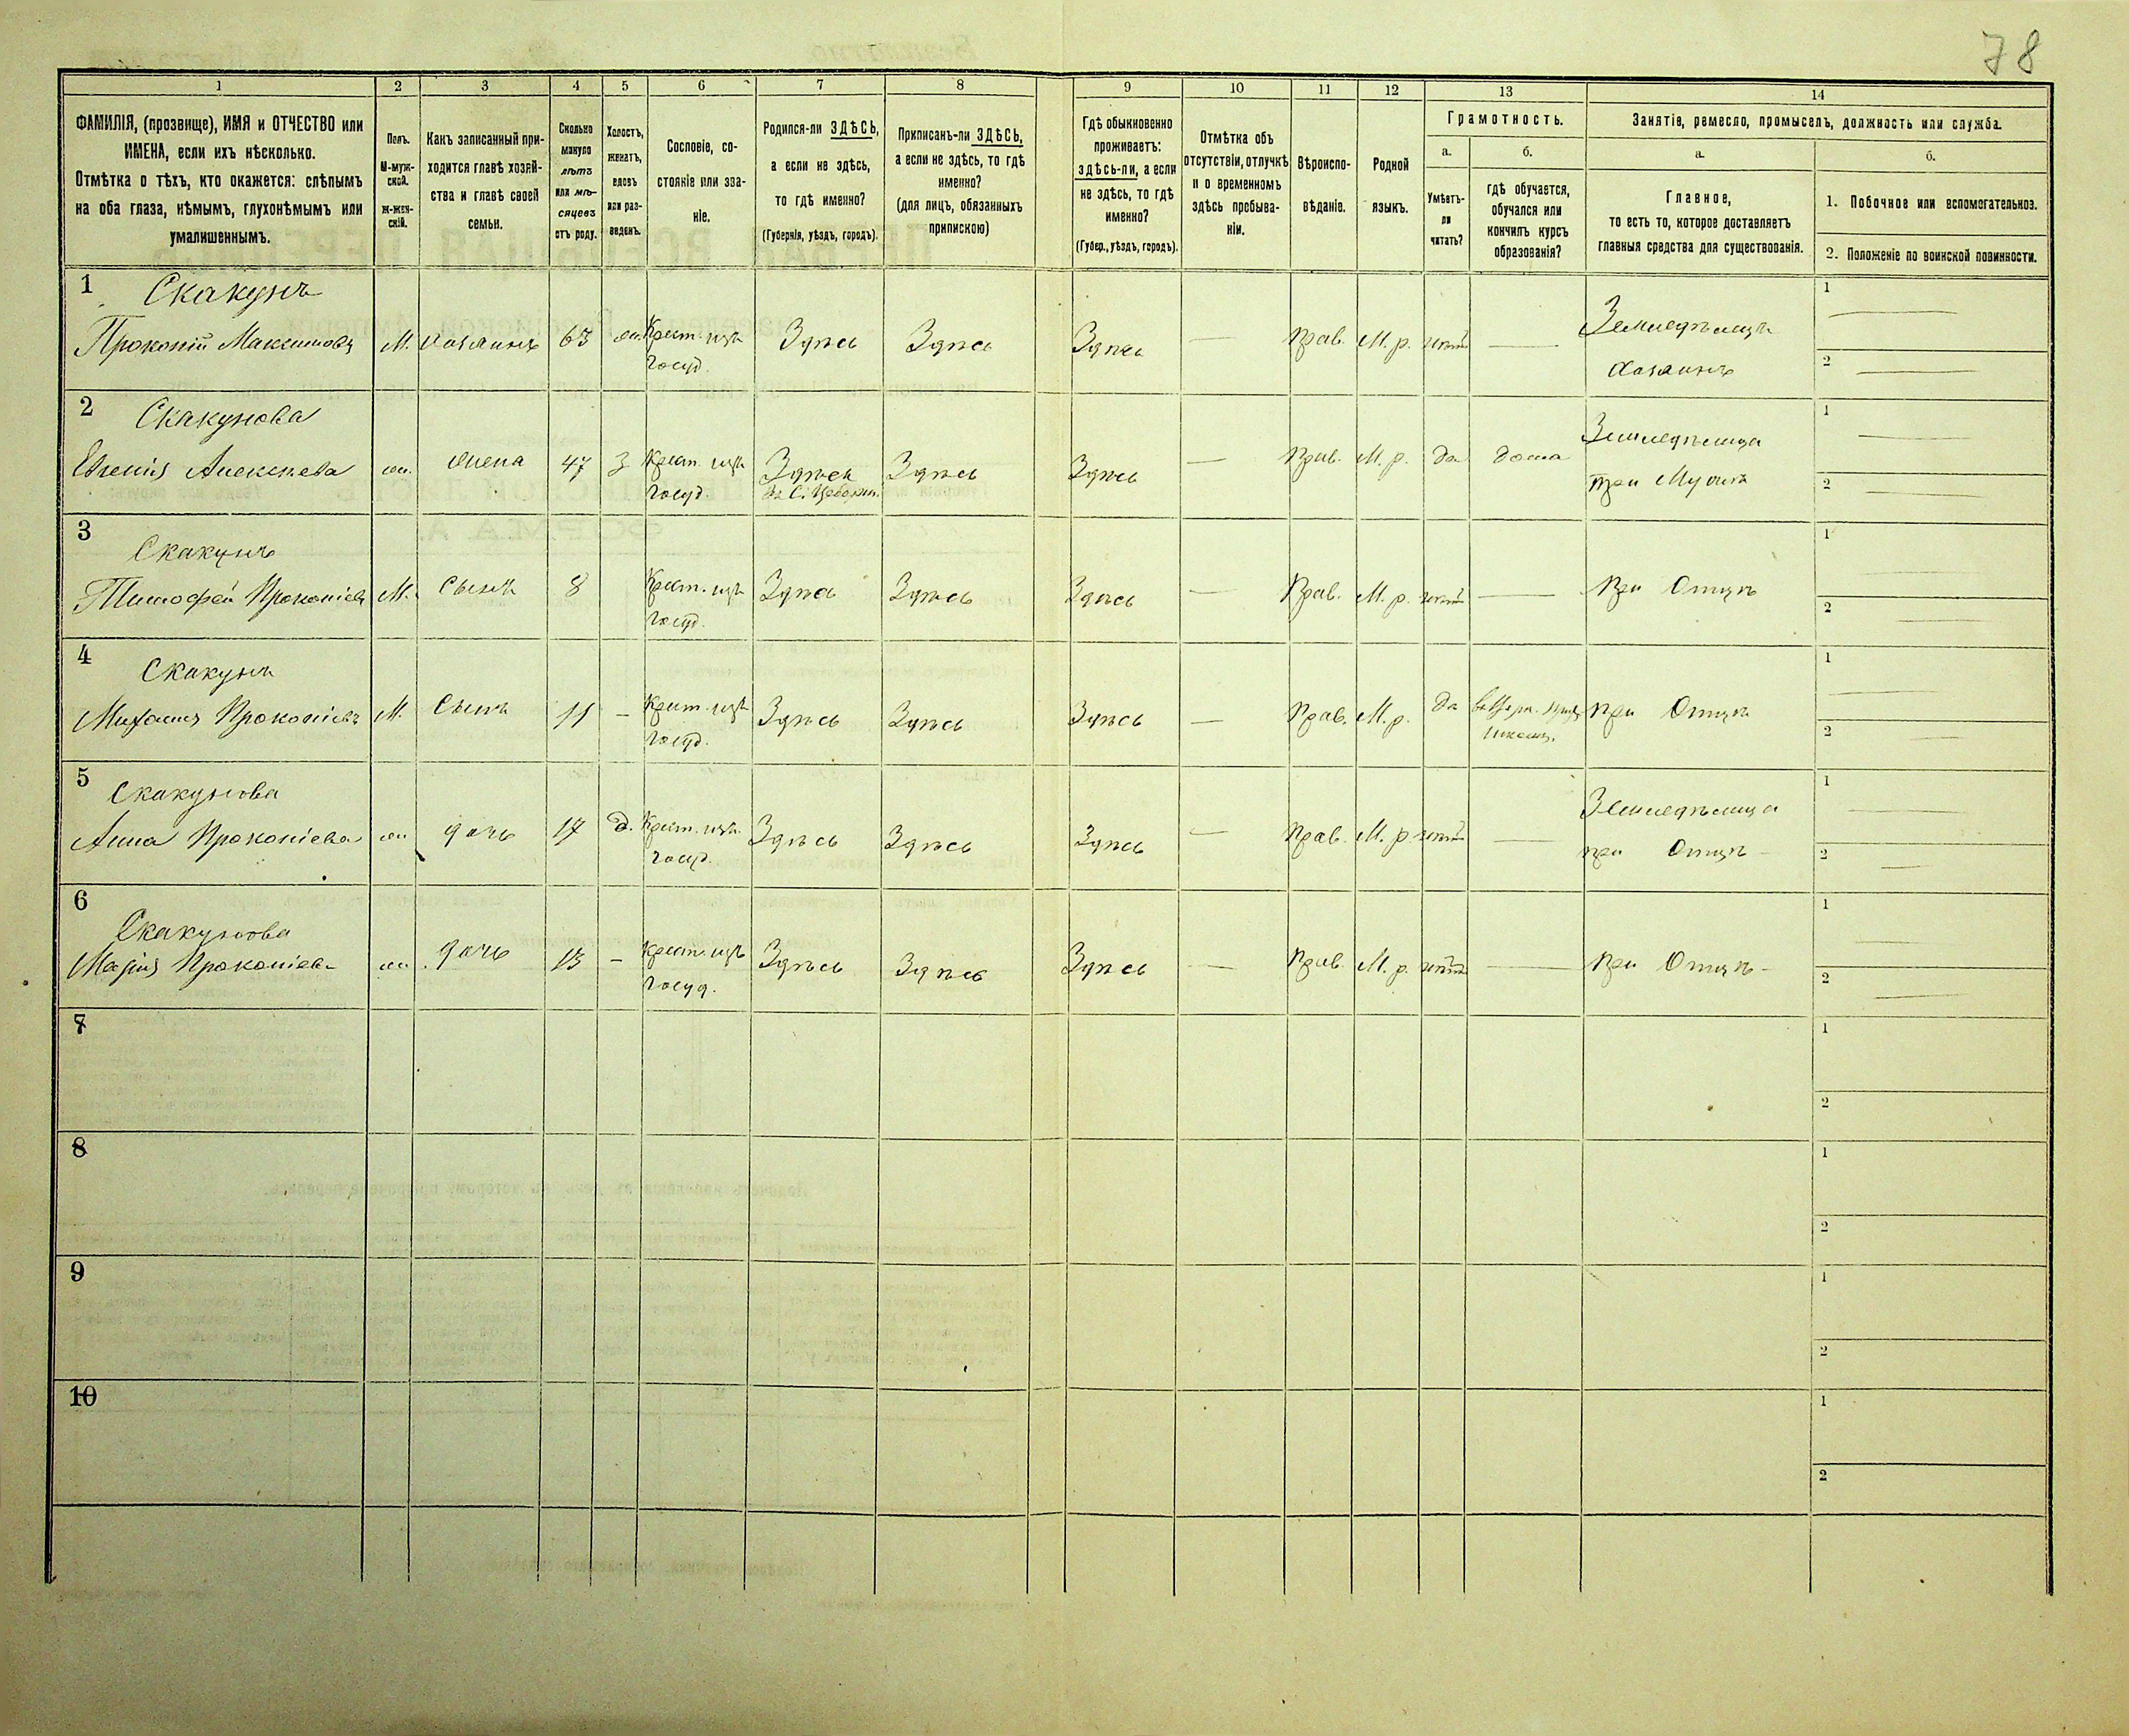 78
1 2 3 4 5 6 7 8 9 10 11 12 13 14
ФАМИЛІЯ, (прозвище), ИМЯ и ОТЧЕСТВО или
ИМЕНА, если ихъ нѣсколько.
Отмѣтка о тѣхъ, кто окажется: слѣпымъ
на оба глаза, нѣмымъ, глухонѣмымъ или
умалишеннымъ.
Полъ.
М-муж-
ской.
Ж-жен-
скій.
Какъ записанный при-
ходится главѣ хозяй-
ства и главѣ своей
семьи.
Сколько
минуло
лѣтъ
или мѣ-
сяцевъ
отъ роду.
Холостъ,
женатъ,
вдовъ
или раз-
веденъ.
Сословіе, со-
стояніе или зва-
ніе.
Родился-ли ЗДѢСЬ,
а если не здѣсь,
то гдѣ именно?
(Губернія, уѣздъ, городъ).
Приписанъ-ли ЗДѢСЬ,
а если не здѣсь, то гдѣ
именно?
(для лицъ, обязанныхъ
припискою)
Гдѣ обыкновенно
проживаетъ:
здѣсь-ли, а если
не здѣсь, то гдѣ
именно?
(Губер., уѣздъ, городъ).
Отмѣтка объ
отсутствіи, отлучкѣ
и о временномъ
здѣсь пребыва-
ніи.
Вѣроиспо-
вѣданіе.
Родной
языкъ.
Грамотность.
а.
Умѣетъ-
ли
читать?
б.
гдѣ обучается,
обучался или
кончилъ курсъ
образованія?
Занятіе, ремесло, промыселъ, должность или служба.
а.
Главное,
то есть то, которое доставляетъ
главныя средства для существованія.
б.
1. Побочное или вспомогательное.
2. Положеніе по воинской повинности.
1 Скакунъ
Прокопій Максимовъ М. хозяинъ 63 ж. Крест. изъ Здѣсь Здѣсь Здѣсь — Прав. М. р. нѣтъ — Земледѣлецъ 1 —
госуд. хозяинъ 2 —
2 Скакунова
Евгенія Алексѣева ж. жена 47 З Крест. изъ Здѣсь Здѣсь Здѣсь — Прав. М. р. да дома Земледѣлица 1 —
госуд. при Мужѣ 2 —
3 Скакунъ
Тимофей Прокопіевъ М. Сынъ 8 Крест. изъ Здѣсь Здѣсь Здѣсь — Прав. М. р. нѣтъ — При Отцѣ 1 —
госуд. 2 —
4 Скакунъ
Михаилъ Прокопіевъ М. Сынъ 11 — Крест. изъ Здѣсь Здѣсь Здѣсь — Прав. М. р. да При Отцѣ 1 —
госуд. 2 —
5 Скакунова
Анна Прокопіева ж дочь 17 д. Крест. изъ Здѣсь Здѣсь Здѣсь — Прав. М. р. нѣтъ — Земледѣлица 1 —
госуд. при Отцѣ — 2 —
6 Скакунова
Марія Прокопіева ж дочь 13 — Крест. изъ Здѣсь Здѣсь Здѣсь — Прав. М. р. нѣтъ — При Отцѣ — 1 —
госуд. 2 —
7 1
2
8 1
2
9 1
2
10 1
2